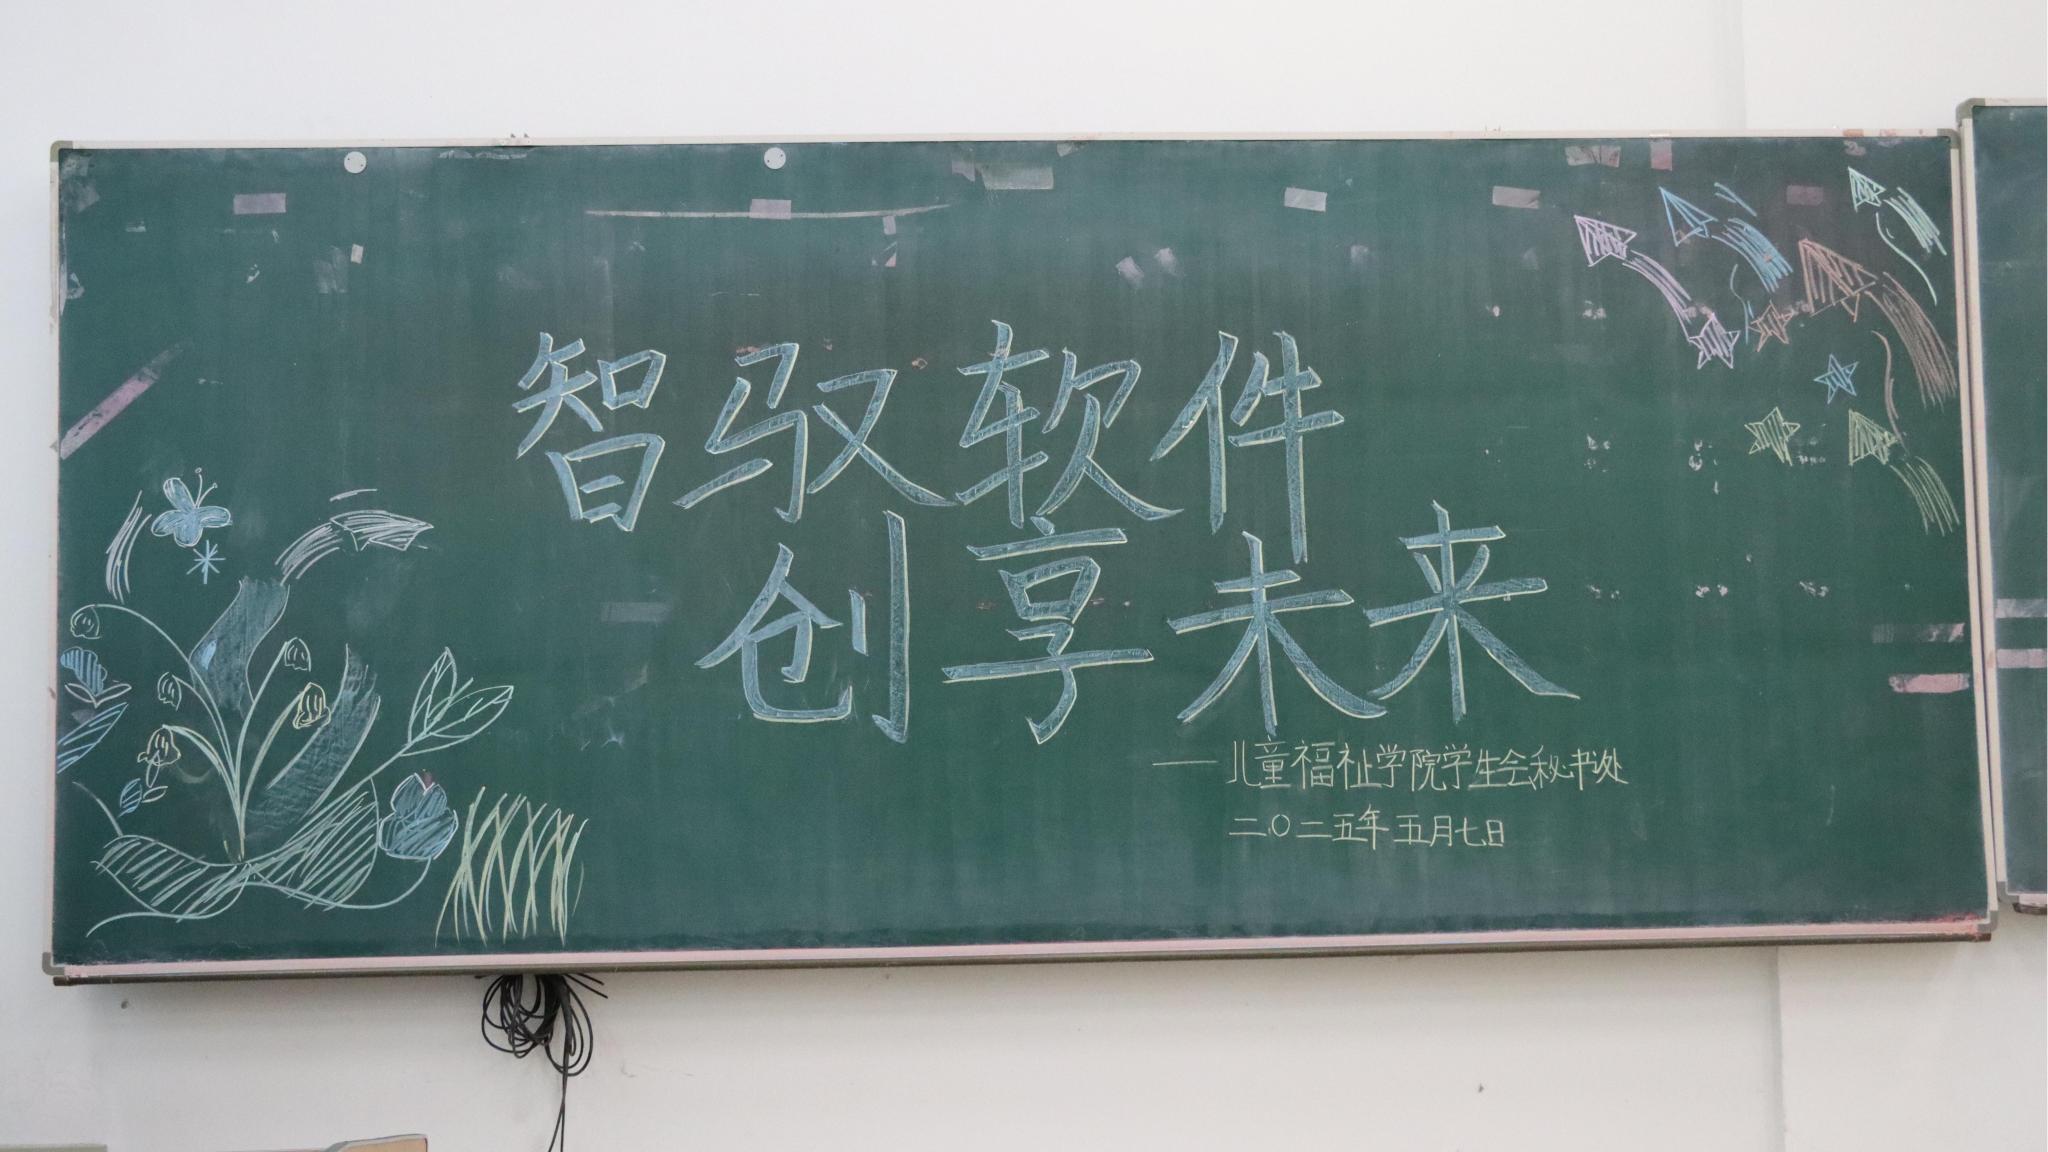 智驭软件
创享未来
——儿童福祉学院学生会秘书处
二〇二五年五月七日